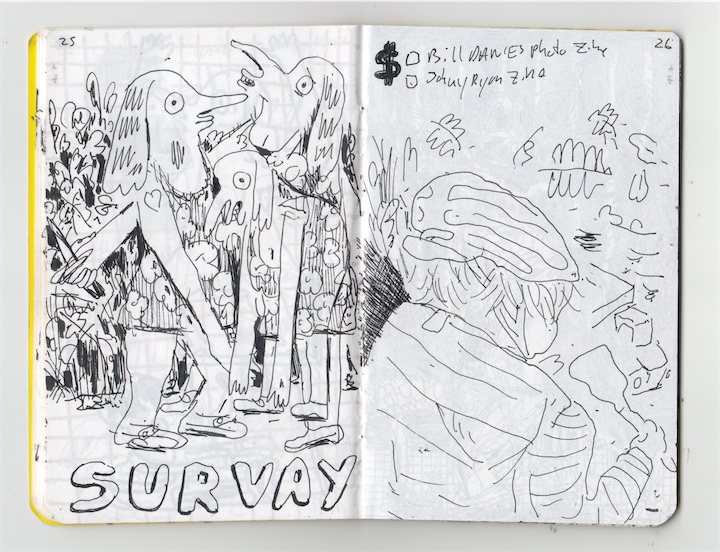 25
SURVAY
26
$ Bill DANIES photo Zine
Johnny Ryan Zine